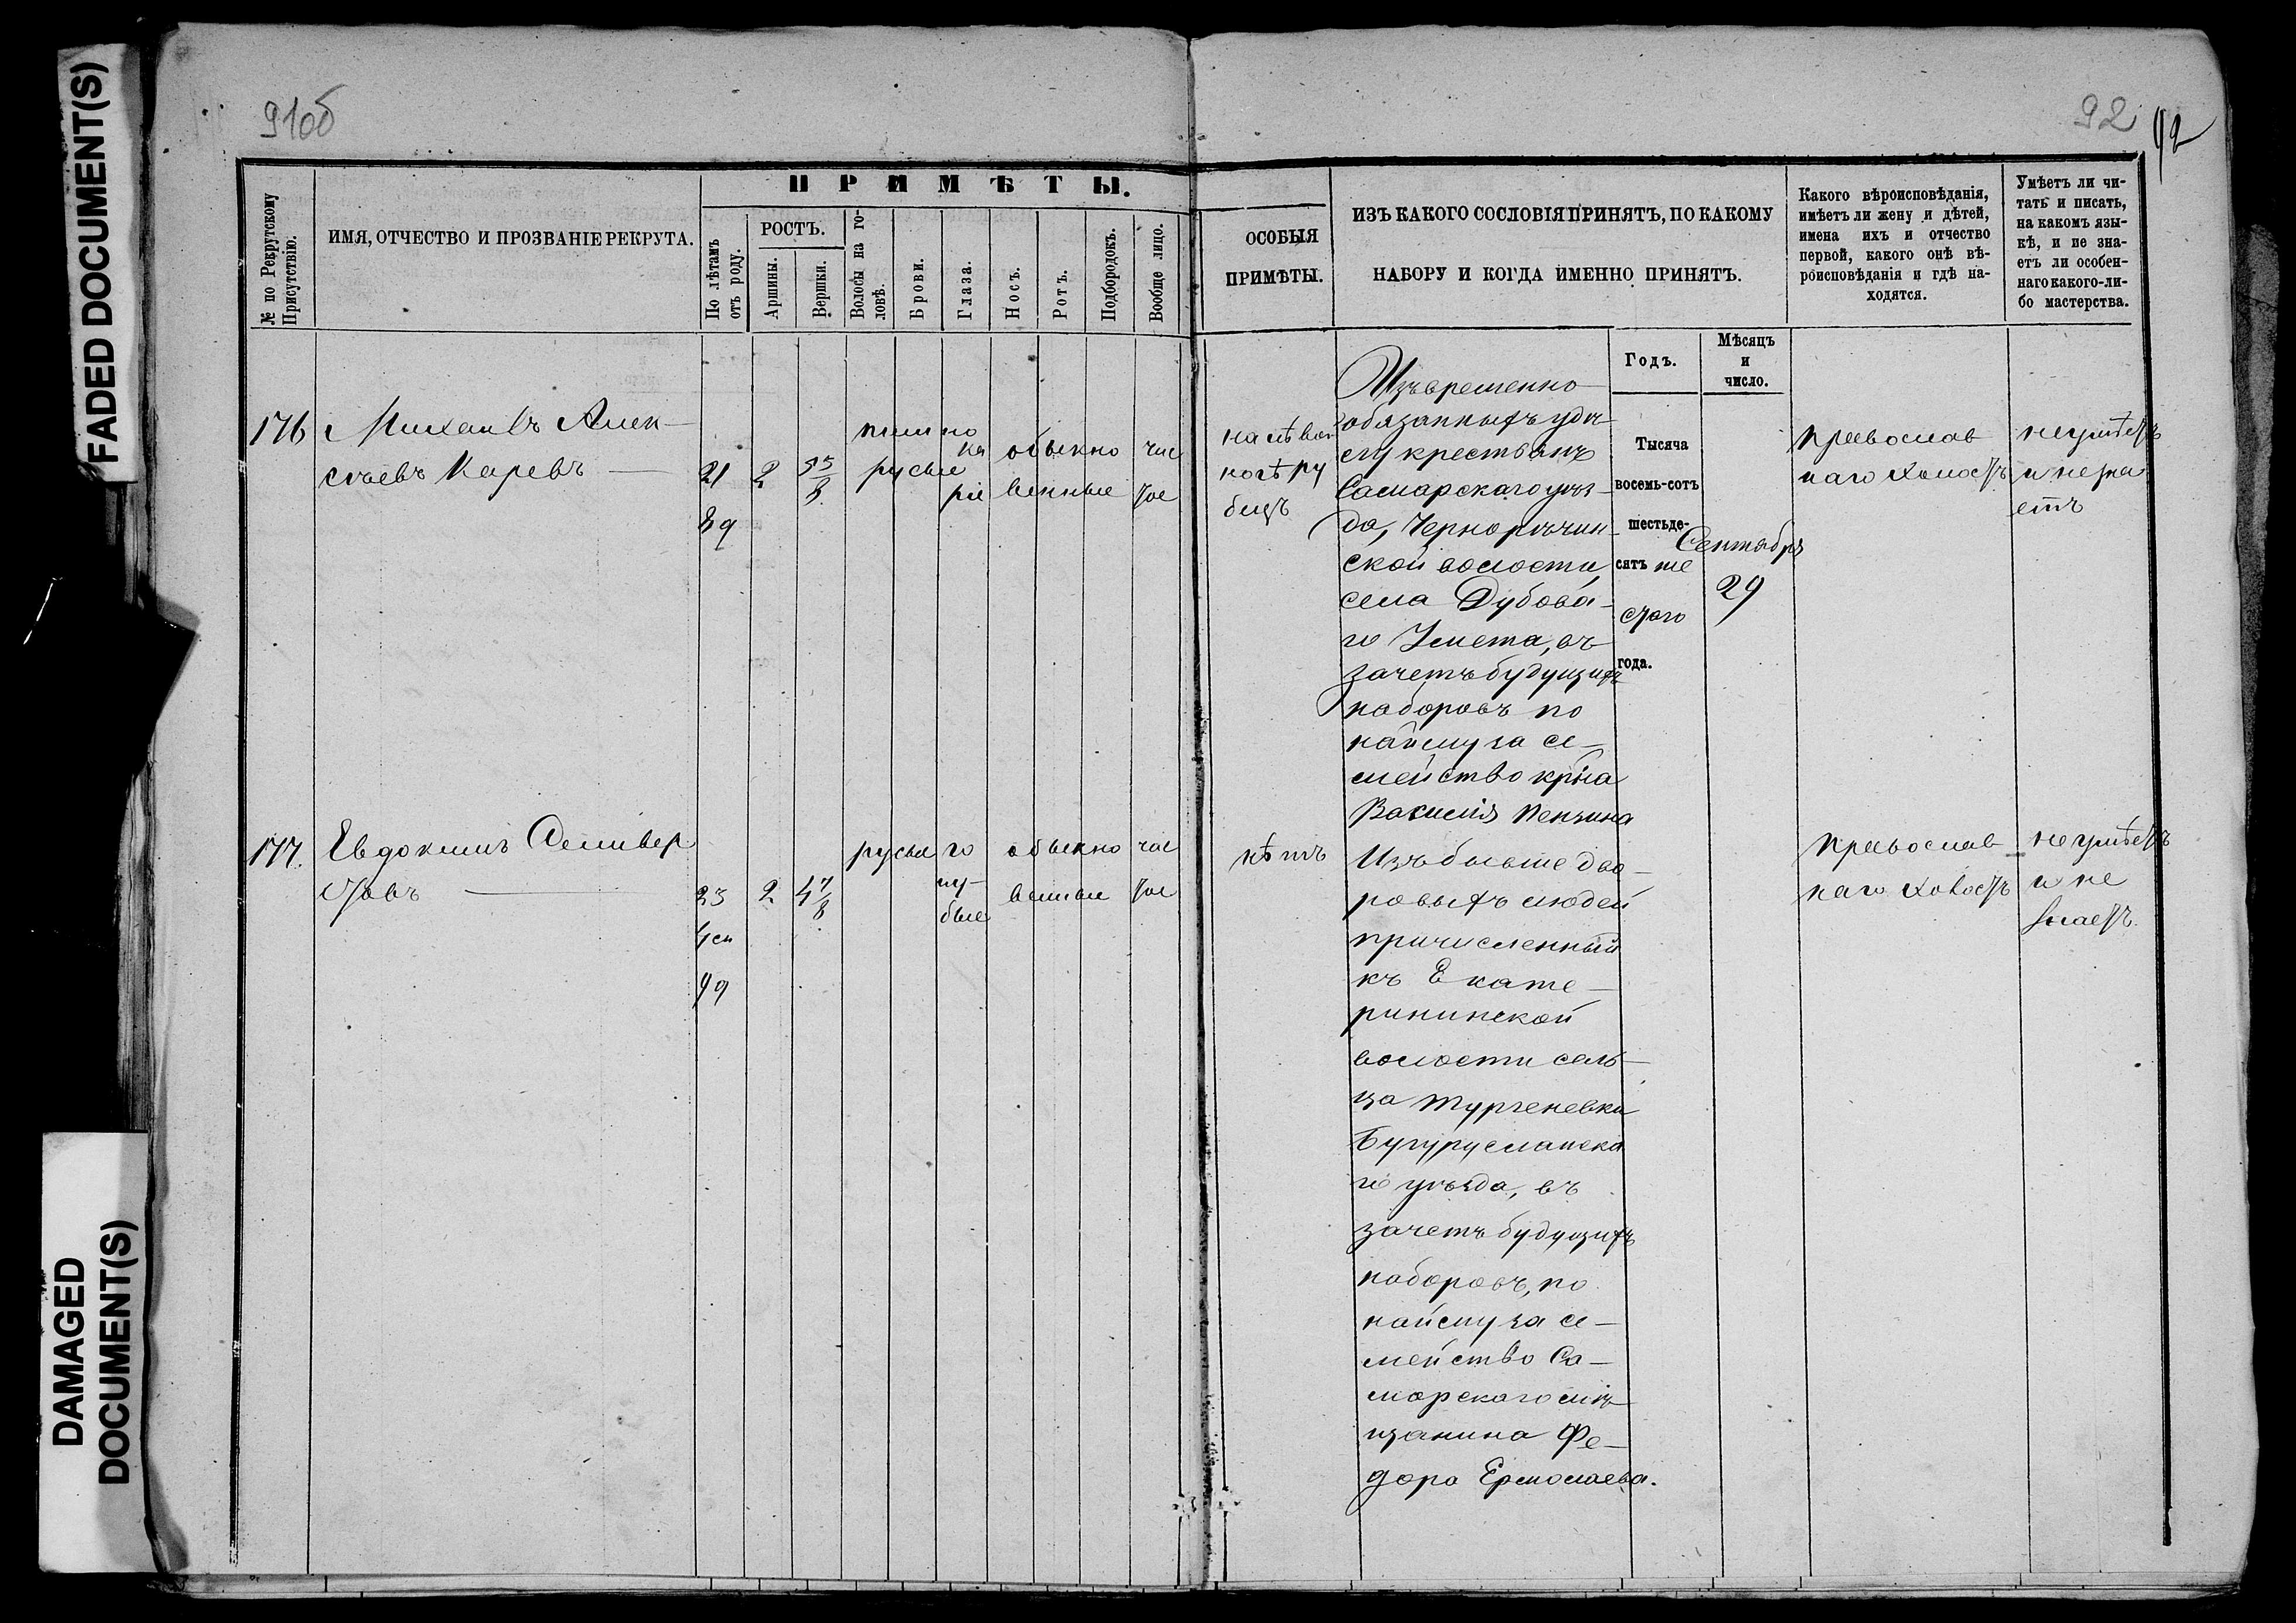 FADED DOCUMENT(S)
DAMAGED
DOCUMENT(S)
91об
92
92
№ по Рекрутскому
Присутствію.
ИМЯ, ОТЧЕСТВО И ПРОЗВАНІЕ РЕКРУТА.
ПРИМѢТЫ.
По лѣтамъ
отъ роду.
РОСТЪ.
Аршины.
Вершки.
Волосы на го-
ловѣ.
Брови.
Глаза.
Носъ.
Ротъ.
Подбородокъ.
Вообще лицо.
ОСОБЫЯ
ПРИМѢТЫ.
ИЗЪ КАКОГО СОСЛОВІЯ ПРИНЯТЪ, ПО КАКОМУ
НАБОРУ И КОГДА ИМЕННО ПРИНЯТЪ.
Годъ.
Мѣсяцъ
и
число.
Какого вѣроисповѣданія,
имѣетъ ли жену и дѣтей,
имена ихъ и отчество
первой, какого онѣ вѣ-
роисповѣданія и гдѣ на-
ходятся.
Умѣетъ ли чи-
тать и писать,
на какомъ язы-
кѣ, и не зна-
етъ ли особен-
наго какого-ли-
бо мастерства.
176
Михаилъ Алек-
сѣевъ Каревъ
21
2
5 5/8
русые
ка
ріе
обыкно
венные
чис
тое
на лѣвой
ногѣ ру
бецъ
Изъ временно
обязанныхъ
крестьянъ
Самарскаго уѣз-
да, Чернорѣчин-
ской волости,
села Дубова-
го Умета, въ
зачетъ будущихъ
наборовъ по
найму за се-
мейство кр-на
Василія Пензина
Тысяча
восемь-сотъ
шестьде-
сятъ ше
стаго
года.
Сентябрь
29
православ
наго холостъ
неумѣетъ
и незна
етъ
177.
Евдокимъ Селивер
стовъ
23
2
4 7/8
русые
го
лу-
бые
обыкно
венные
чис
тое
нѣтъ
Изъ бывше дво-
ровыхъ людей
причисленный
къ Екате-
рининской
волости сель-
ца Тургеневки
Бугурусланска
го уѣзда, въ
зачетъ будущихъ
наборовъ, по
найму за се-
мейство Са-
марскаго мѣ-
щанина Фе-
дора Ермолаева.
православ
наго холостъ
не умѣетъ
и не
знаетъ.